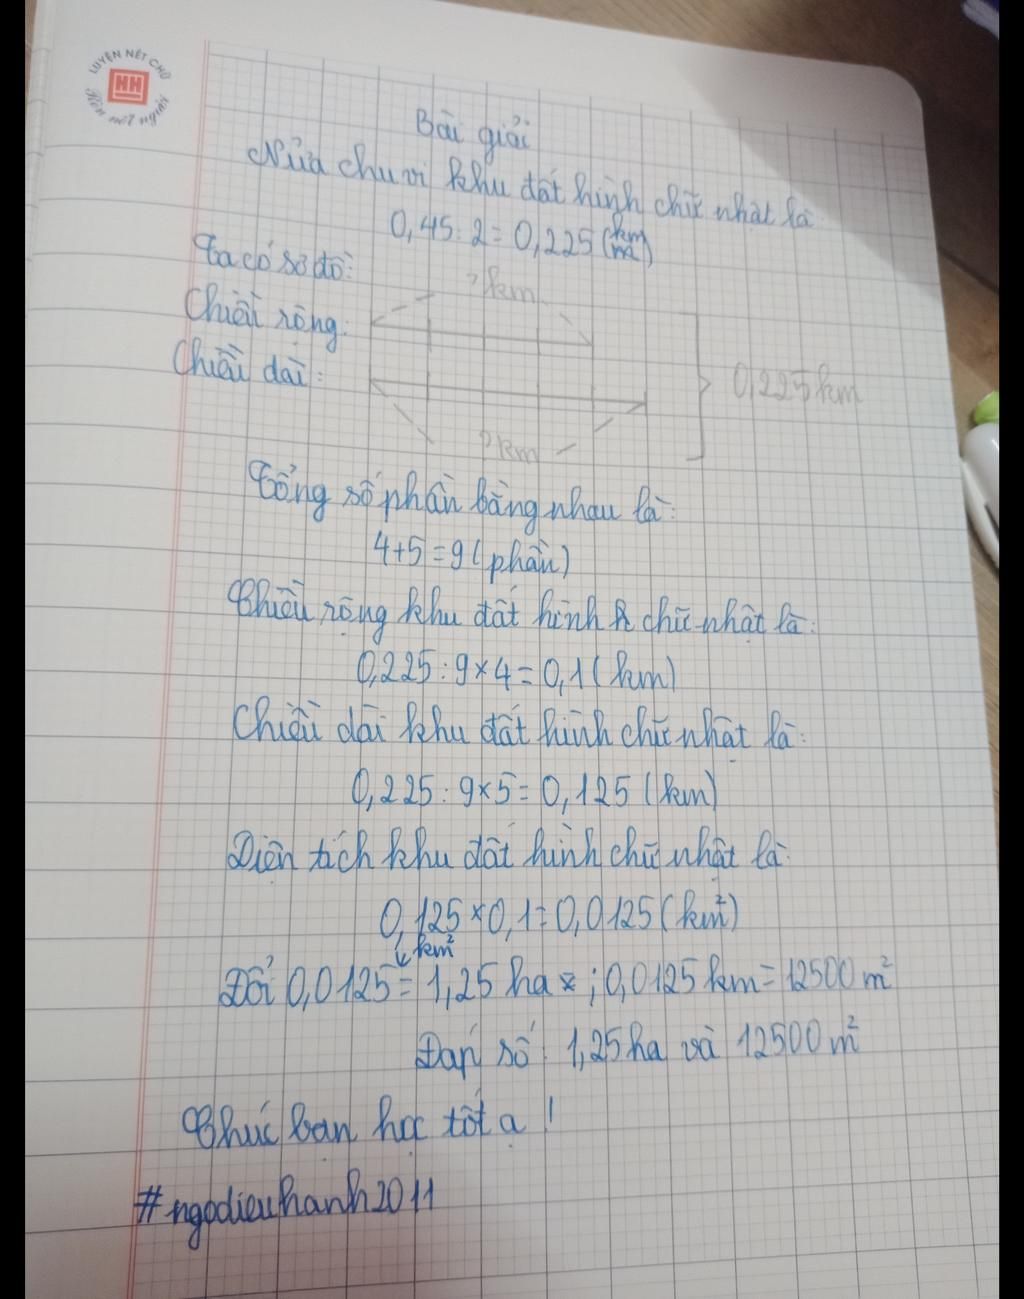 LUYỆN NÉT CHỮ
HH
Rèn nết người
Bài giải
Nửa chu vi khu đất hình chữ nhật là
0,45 : 2 = 0,225 (km)
Ta có sơ đồ:
? km
Chiều rộng:
Chiều dài:
0,225 km
? km
Tổng số phần bằng nhau là:
4+5 = 9 ( phần)
Chiều rộng khu đất hình chữ nhật là:
0,225 : 9 × 4 = 0,1 ( km)
Chiều dài khu đất hình chữ nhật là:
0,225 : 9 × 5 = 0,125 (km)
Diện tích khu đất hình chữ nhật là:
0,125 × 0,1 = 0,0125 (km²)
km²
Đổi 0,0125 = 1,25 ha ; 0,0125 km = 12500 m²
Đáp số : 1,25 ha và 12500 m²
Chúc bạn học tốt ạ !
#ngodieuhanh2011